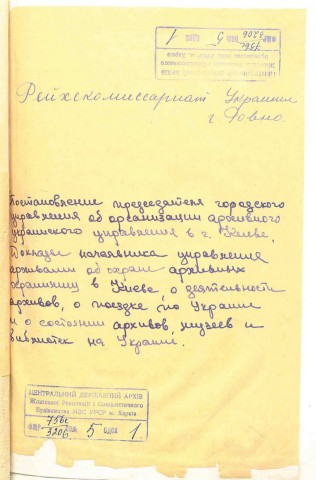 ФНР 3206 оп. 5 ОДСХ 1
756с
Рейхскомиссариат Украины
г. Ровно.
Постановление председателя городского
управления об организации архивного
украинского управления в г. Киеве.
Доклады начальника управления
архивами об охране архивных
хранилищ в Киеве, о деятельности
архивов, о поездке по Украине
и о состоянии архивов, музеев и
библиотек на Украине.
ЦЕНТРАЛЬНИЙ ДЕРЖАВНИЙ АРХІВ
Жовтневої Революції і Соціалістичного
Будівництва МВС УРСР м. Харків
756с
3206 5 ОДСХ 1.